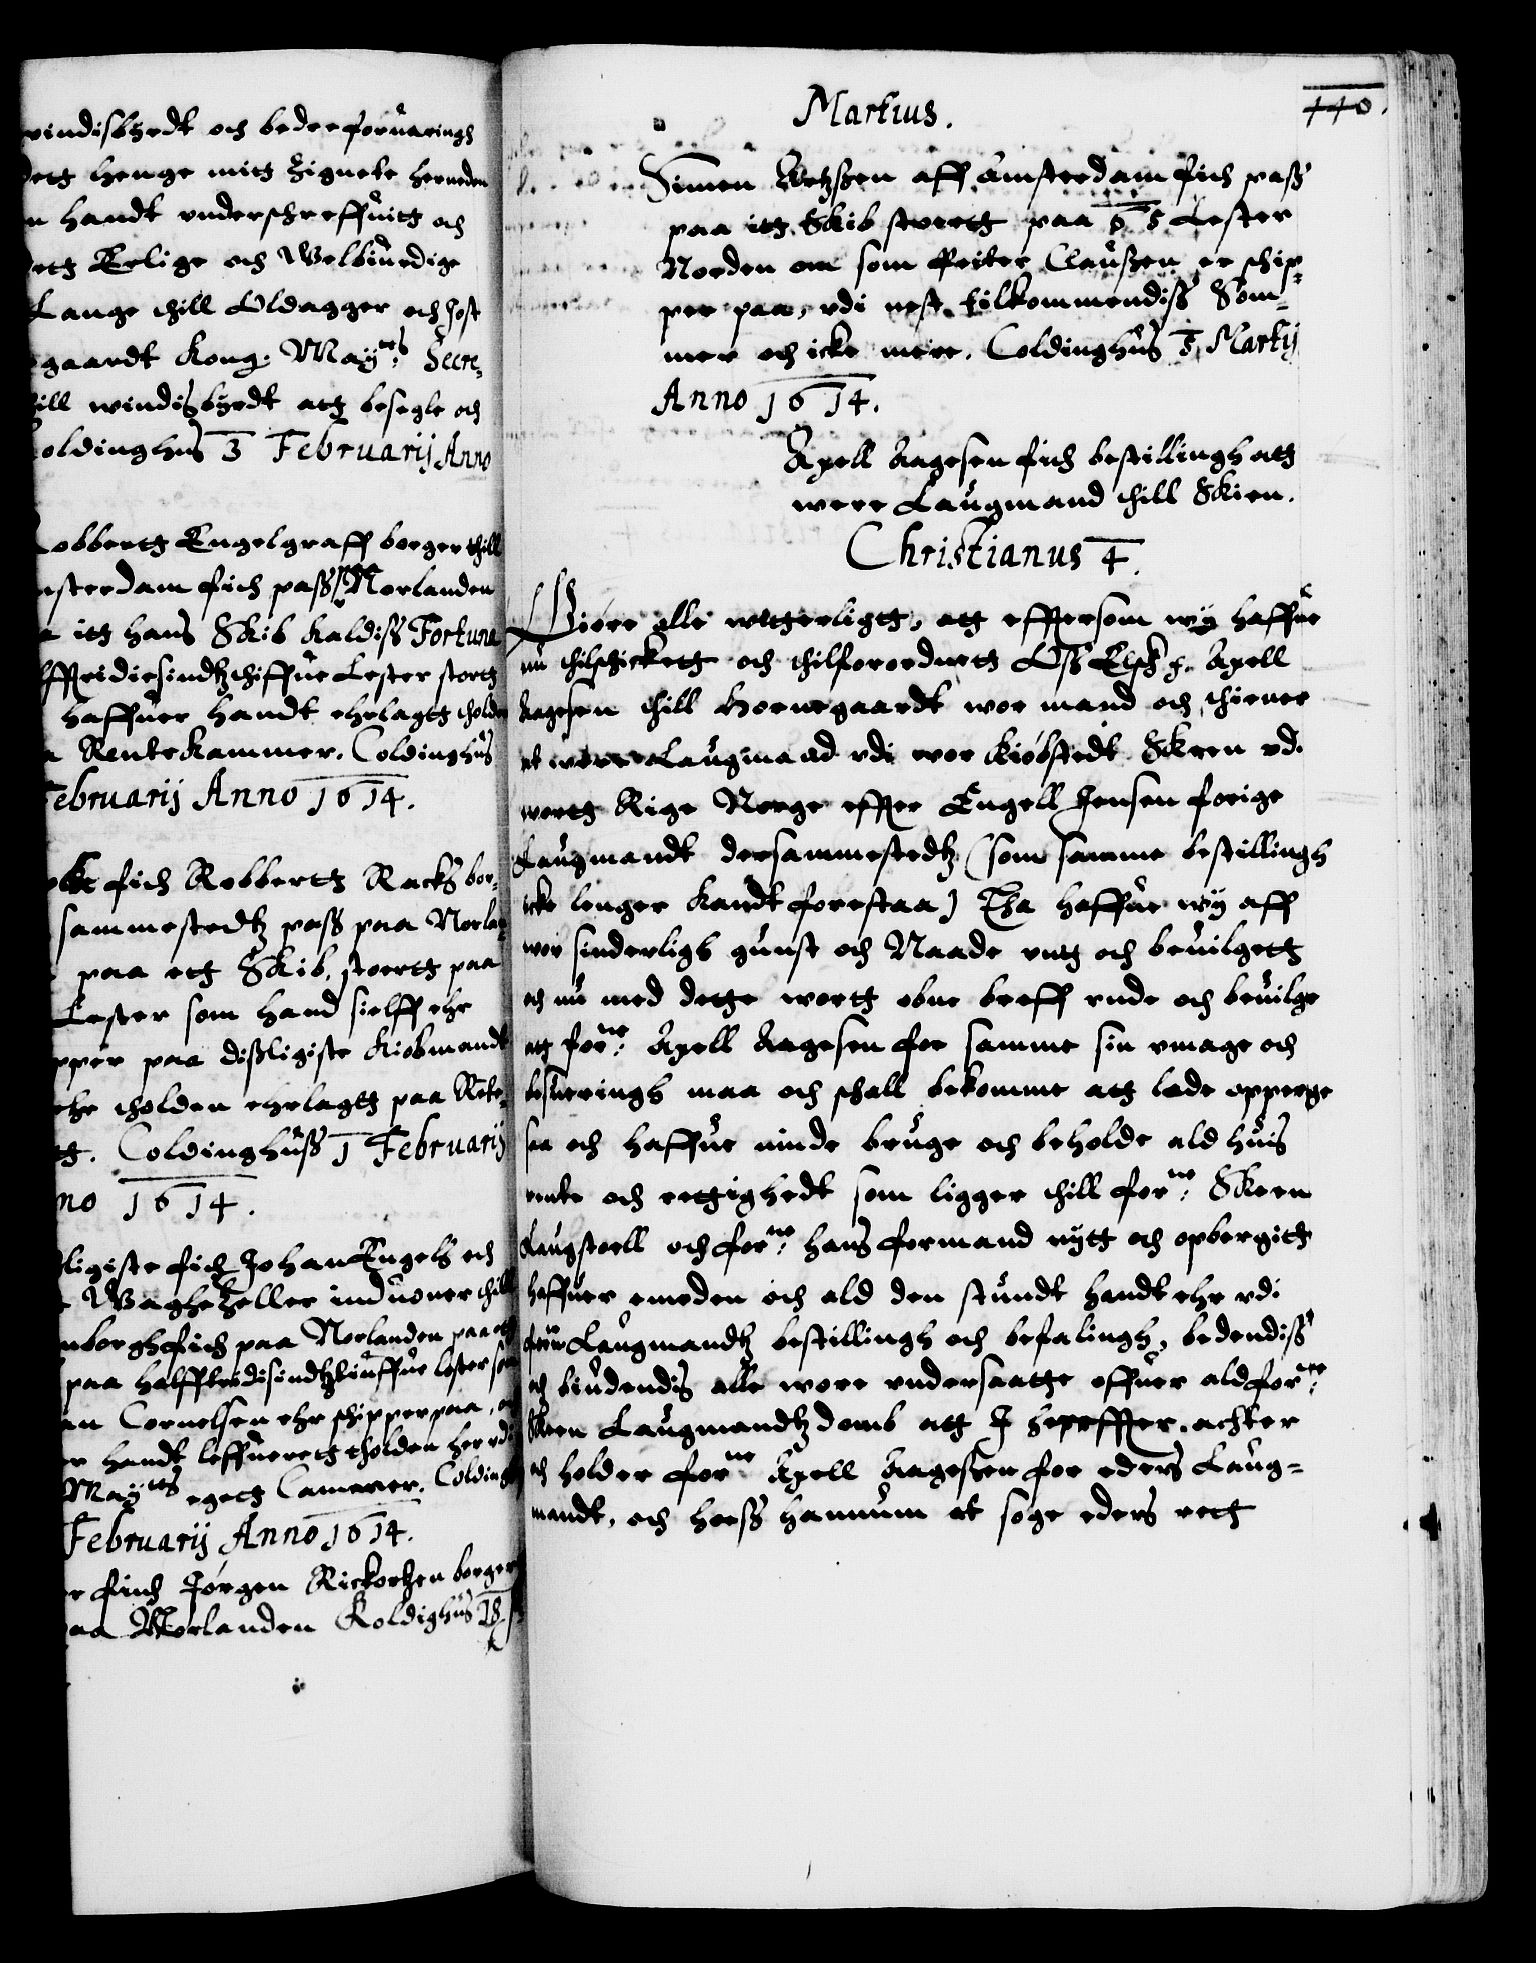 windisbyrdt och bedreforuarings
dett henge mitt Zignete herneden
n handt underschreffuitt och
dett Erlige och Welbiurdige
Lange thill Oldagger och Jost
gaardt Kong: Maytts Secre-
till windisbyrdt att besegle och
oldinghus 3 Februarij Anno
Robbertt Engelgraff borger thill
msterdam fich pass Norlanden
a itt hans Skib Kaldiss Fortuna
halffierdiesindtzthiffue Lester stortt
haffuer handt ehrlagtt tholden
a Rentekammer. Coldinghus
Februarij Anno 1614.
fich Robbertt Racks bor-
sammestedtz pass paa Norlan-
paa ett Skib. stoertt paa
Lester som hand sielff ehr
pper paa dissligiste Kiobmandt
ehr tholden ehrlagtt paa Rente-
tt. Coldinghuss 1 Februarij
no 1614.
ligiste fich Johan Engels och
Waghezeller induoner thill
nborgh fich paa Norlanden paa ett
paa halffierdisindtztiuffue lester som
an Cornelsen ehr schipper paa, och
er handt leffuerett tholden her udi
Maytts egett Cammer. Coldingh
Februarij Anno 1614.
er finch Jörgen Rickertzen borger
aa Norlanden Koldighus 18
Martius.
110.
Simen Wetzsen aff Amsterdam fich pass
paa itt Skib stoertt paa 65 Lester
Norden om som Peiter Claussen er schip-
per paa, udi nest tilkommendiss Som-
mer och icke mere. Coldinghus 5 Martij
Anno 1614.
Axell Aagesen fich bestillingh att
were Laugmand thill Skien.
Christianus 4.
Giöre alle witterligtt, att effttersom wy haffue
nu thilschickett och thilforordnett Oss Elsk e. Axell
Aagesen thill Hornegaardt wor mand och thiener
at were Laugmand udi wor kiöbstedt Skeen ud.
wortt Rige Norge effter Engell Jensen forige
Laugmandt dersammestedtz (som samme bestillingh
icke lenger kandt forestaa) Tha haffue wy aff
wor sinderligh gunst och Naade untt och beuilgett
och nu med dette wortt obne breff unde och beuilge
att forne: Axell Aagesen for samme sin umage och
besuerings maa och schall bekomme att lade opperge
saa och haffue ninde bruge och beholde ald huis
rente och rettighedt som ligger thill forne: Skeen
Laugstoell och forne: hans formand nytt och opbergitt
haffuer emeden och ald den stundt handt ehr udi
Laugmandtz bestillingh och befalingh, bedendiss
och biudendis alle wore undersaatte offuer ald forne:
Skeen Laugmandtz domb att I hereffter, achter
och holder forne Axell Aagessen for eders Laug-
mandt, och hoess hannum at soge eders rett